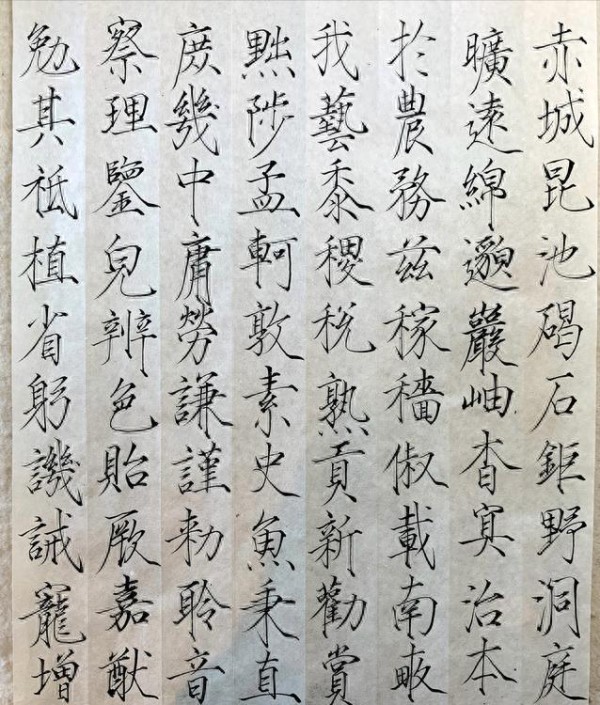 赤城昆池碣石鉅野洞庭
曠遠綿邈巖岫杳冥治本
於農務兹稼穡俶載南畝
我藝黍稷税熟貢新勸賞
黜陟孟軻敦素史魚秉直
庶幾中庸勞謙謹勑聆音
察理鑒皃辨色貽厥嘉猷
勉其祗植省躬譏誡寵增